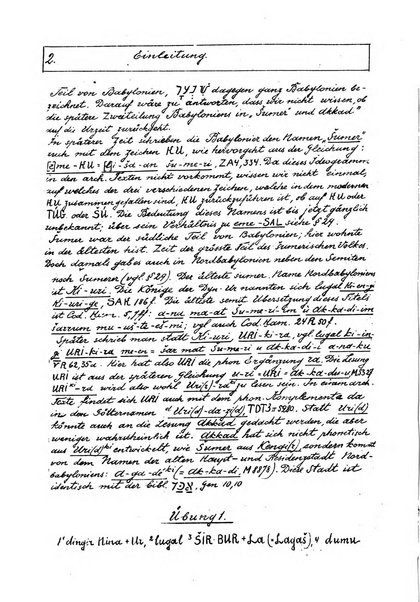 2. Einleitung.
Teil von Babylonien, dagegen ganz Babylonien be-
zeichnet. Darauf wäre zu antworten, dass wir nicht wissen, ob
die spätere Zweiteilung Babyloniens in „Sumer" und Akkad"
auf die Urzeit zurückgeht.
In späterer Zeit schrieben die Babylonier den Namen „Sumer"
auch mit dem Zeichen KU, wie hervorgeht aus der Gleichung:
eme-KU = li-ša-an Šu-me-ri, ZA4, 334. Da dieses Ideogramm
in den arch. Texten nicht vorkommt, wissen wir nicht einmal,
auf welches der drei verschiedenen Zeichen, welche in dem modernen
KU zusammengefallen sind, KU zurückzuführen ist, ob auf KU oder
TÚG oder ŠÚ. Die Bedeutung dieses Namens ist bis jetzt gänzlich
unbekannt; über sein Verhältnis zu eme-SAL siehe § 24.
Sumer war der südliche Teil von Babylonien; hier wohnte
in der ältesten hist. Zeit der grösste Teil des sumerischen Volkes.
Doch damals gab es auch in Nordbabylonien neben den Semiten
noch Sumerer (vgl § 29). Der älteste sumer. Name Nordbabyloniens
ist Ki-uri. Die Könige der Dyn. Ur nannten sich lugal Ki-en-gi
Ki-uri-ge, SAK 186f. Die älteste semit Übersetzung dieses Titels
ist Cod. Ham. 5,7ff: a-na ma-at Šu-me-ri-im ù Ak-ka-di-im
šarrum mu-uš-te-eš-mi; vgl. auch Cod. Ham. 24R 50f.
Später schrieb man statt Ki-uri, URI-ki-ra, vgl lugal ki-in-
gi URI-ki-ra me-en = šar mat Šu-me-ri u Ak-ka-di-i a-na-ku
V R 62,35a. Hier hat also URI die phon Ergänzung ra. Die Lesung
URI ist aus der späteren Gleichung u-ri = URI = ak-ka-du-u
URI-ra wird also wohl Uri(r)-ra zu lesen sein. In einem arch.
Texte findet sich URI auch mit dem phon. Komplementa da
in dem Götternamen Uri(d)-da-z(d) TDT3 = 5280. Statt Uri(d)
könnte auch an die Lesung Akkad gedacht werden, die aber
weniger wahrscheinlich ist. Akkad hat sich nicht phonetisch
aus Uri(d) entwickelt, wie Sumer aus Kengi(r) sondern kommt
von dem Namen der alten Haupt- und Residenzstadt Nord-
babyloniens: a-ga-dè ki (= Ak-ka-di, M 8878). Diese Stadt ist
identisch mit der bibl. אכד, Gen 10,10
Übung 1.
1 dingir Nina + Ur, 2 lugal 3 ŠIR-BUR + La (= Lagaš), 4 dumu